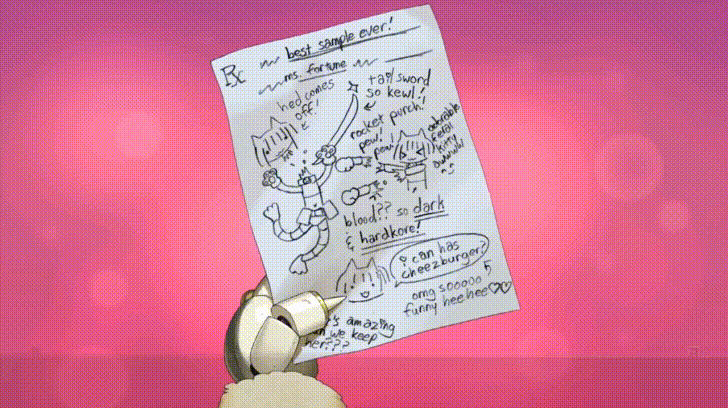 best sample ever!
Rx
ms. fortune
hed comes
off!
tail sword
so kewl!
rocket punch!
pew!
pew!
adorable
feral
kitty
owwwW
^^
blood?? so dark
& hardkore!
i can has
cheezburger?
omg sooooo
funny hee hee♡♡
's amazing
an we keep
her???